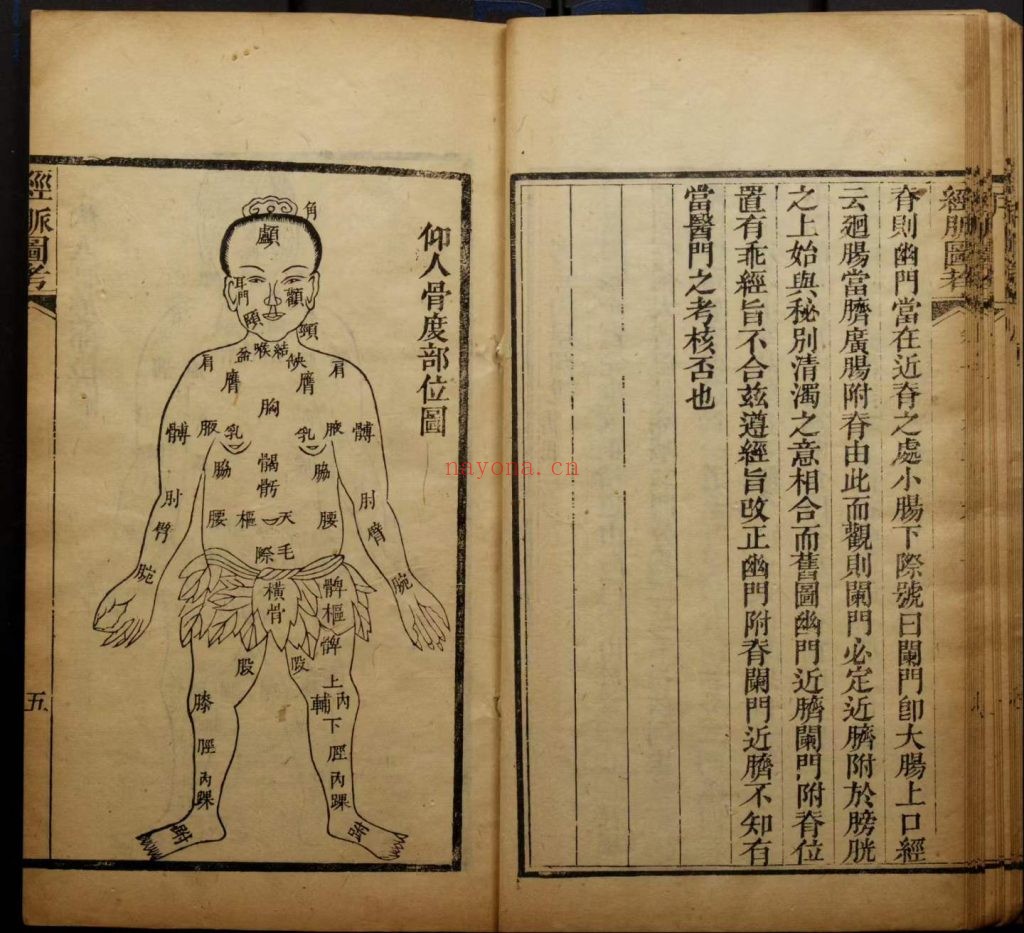 經脈圖考
脊則幽門當在近脊之處小腸下際號曰闌門卽大腸上口經
云廻腸當臍廣腸附脊由此而觀則闌門必定近臍附於膀胱
之上始與秘別清濁之意相合而舊圖幽門近臍闌門附脊位
置有乖經旨不合茲遵經旨改正幽門附脊闌門近臍不知有
當醫門之考核否也
仰人骨度部位圖
角
顱
耳門
顴
頤
頸
盆
喉
結
缺
肩
肩
膺
膺
胸
髆
腋
乳
乳
腋
髆
脇
𩩲
骬
脇
肘
肘
臂
腰
樞
天
腰
臂
際
毛
腕
腕
橫
骨
髀
樞
髀
股
股
上
內
輔
下
膝
脛
脛
內
踝
內
踝
跗
經脈圖考
五
nayona.cn